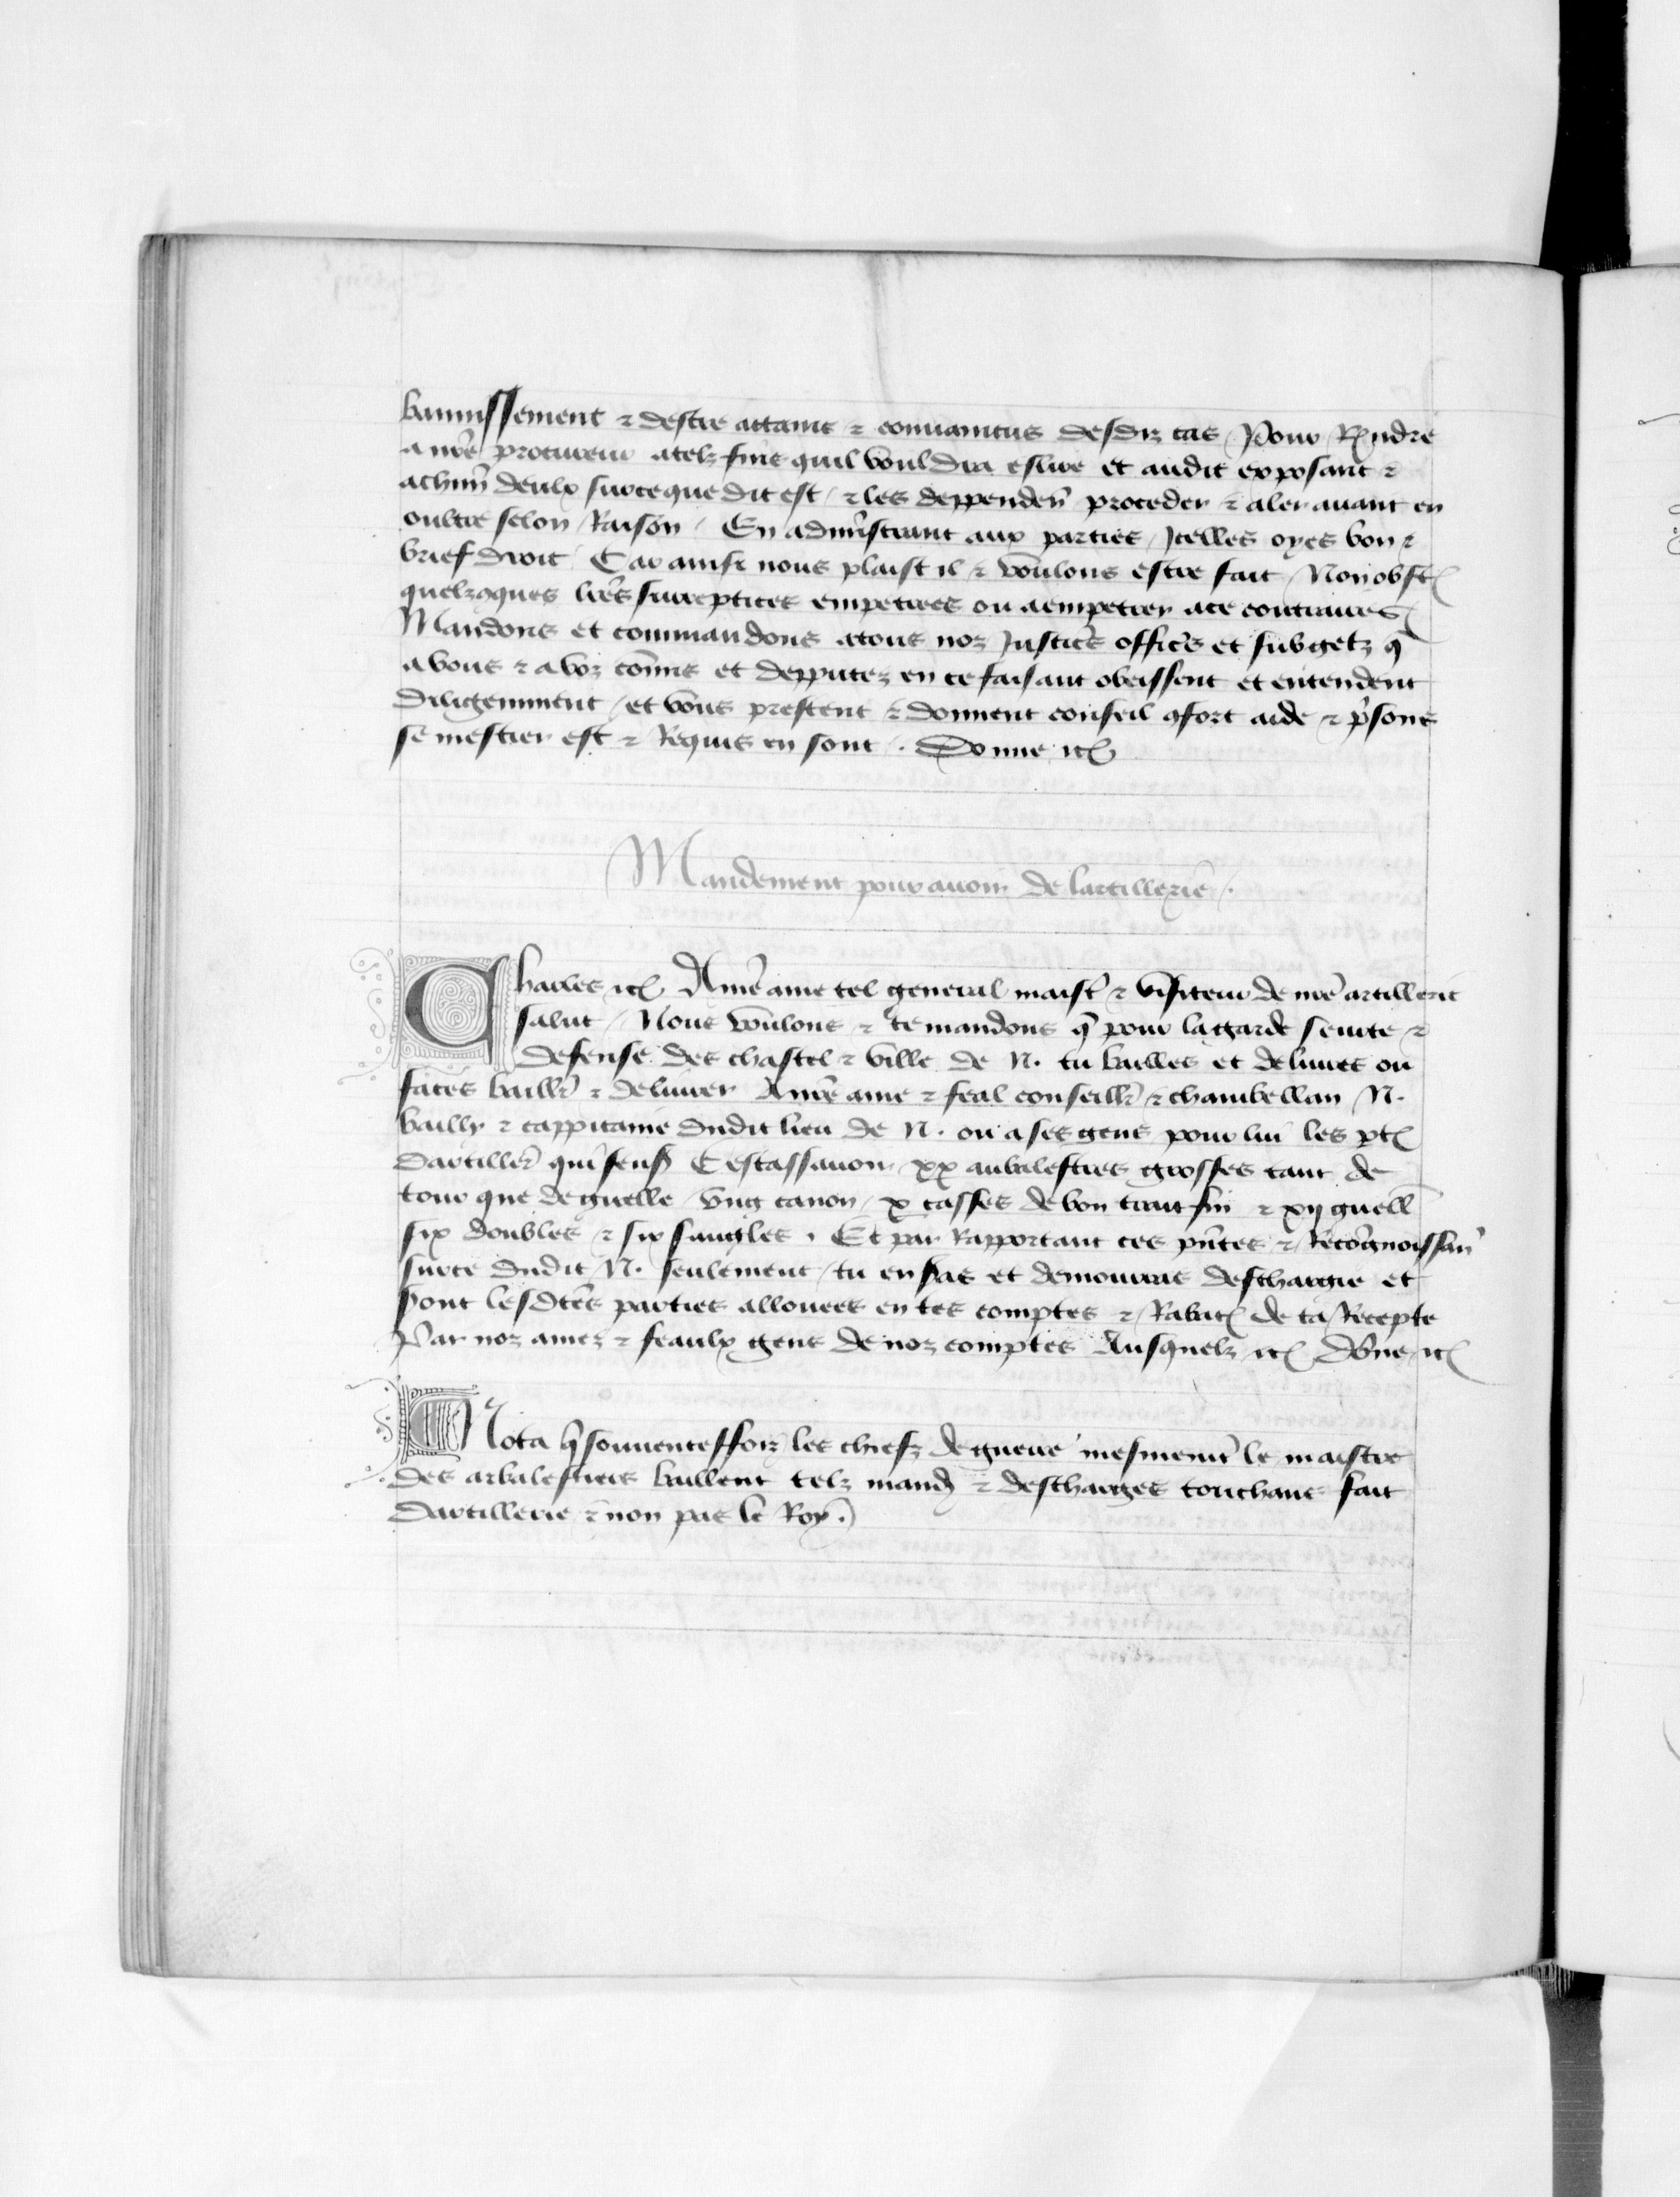 bannissement ⁊ destre attains ⁊ conuaincus desdiz cas / Pour Rendre
a nre̅ procureur a telz fins quil vouldra eslire et audit exposant ⁊
a chun̅ deulx sur ce que dit est / ⁊ les deppenden̅ proceder ⁊ aler auant en
oultre selon Raison / En admi̅strant aux parties / Icelles oyes bon ⁊
brief droit Car ainsi nous plaist il ⁊ voulons estre fait / Non obst̅
quelzcques lrẽs surreptices empetrees ou a empetrer a ce contraires
Mandons et commandons a tous noz Justicˢ officˢ et subgetz q̅
a vous ⁊ a voz co̅mis et depputez en ce faisant obeissent et entendent
diligemment / et vous prestent ⁊ donnent conseil ꝯfort aide ⁊ pˢsons
se mestier est ⁊ Requis en sont / . Donne etc̅

Mandement pour auoir de lartillerie / .

Charles etc̅ A nre̅ ame tel general maistˢ ⁊ visiteur de nre̅ artillerie
salut / Nous voulons ⁊ te mandons q̅ pour la garde seurte ⁊
defense des chastel ⁊ ville de N. tu bailles et deliures ou
faces baillˢ ⁊ deliurer A nre̅ ame ⁊ feal conseillˢ ⁊ chambellan N.
bailly ⁊ cappitaine dudit lieu de N. ou a ses gens pour lui les pt̅
dartillerˢ qui senss̅ Cestassauoir xx arbalestres grosses tant de
tour que de guelle / vng canon / x casses de bon trait fin ⁊ xij guell̅
six doubles ⁊ six sangles . Et par Rapportant ces pn̅tes ⁊ Recongnoissan̅
sur ce dudit N. seulement / tu en sˢas et demourras deschargie et
sˢont lesdc̅es parties allouees en tes comptes ⁊ Rabat̅ de ta Recepte
Par noz amez ⁊ feaulx gens de noz comptes Ausquelz etc̅ Do̅ne etc̅

Nota q̅ souuenteffoiz les chiefz de guerre mesmemt̅ le maistre
des arbalestriers baillent telz mand̅ ⁊ descharges touchans fait
dartillerie ⁊ non pas le Roy .